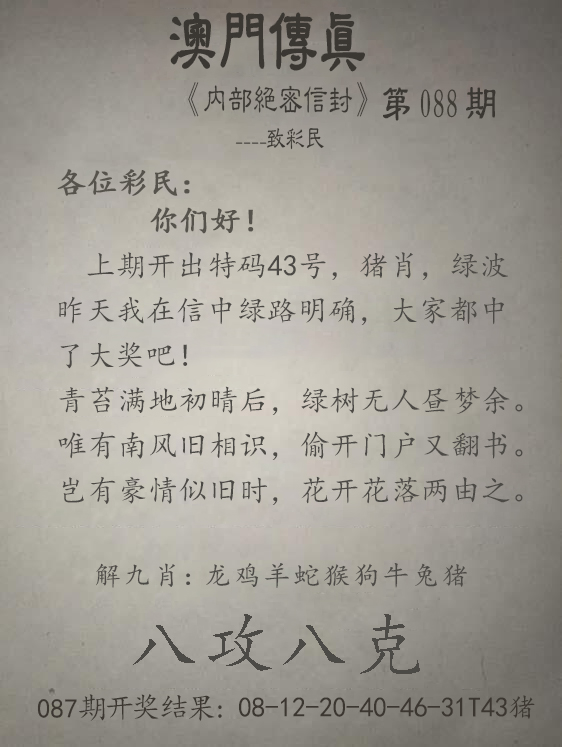 澳門傳眞
《内部絕密信封》第088期
----致彩民
各位彩民：
你们好！
上期开出特码43号，猪肖，绿波
昨天我在信中绿路明确，大家都中
了大奖吧！
青苔满地初晴后，绿树无人昼梦余。
唯有南风旧相识，偷开门户又翻书。
岂有豪情似旧时，花开花落两由之。
解九肖：龙鸡羊蛇猴狗牛兔猪
八攻八克
087期开奖结果：08-12-20-40-46-31T43猪